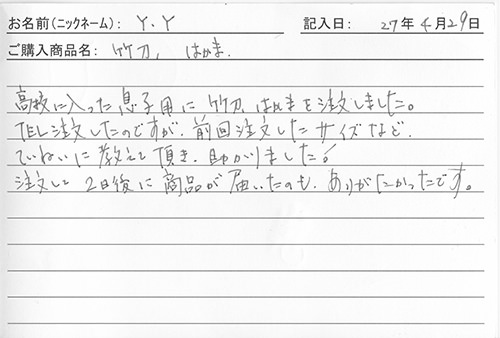 お名前(ニックネーム): Y.Y 記入日: 27年4月29日
ご購入商品名: 竹刀, はかま.
高校に入った息子用に竹刀,はかまを注文しました。
TEL注文したのですが、前回注文したサイズなど、
ていねいに教えて頂き、助かりました!
注文して2日後に商品が届いたのも、ありがたかったです。